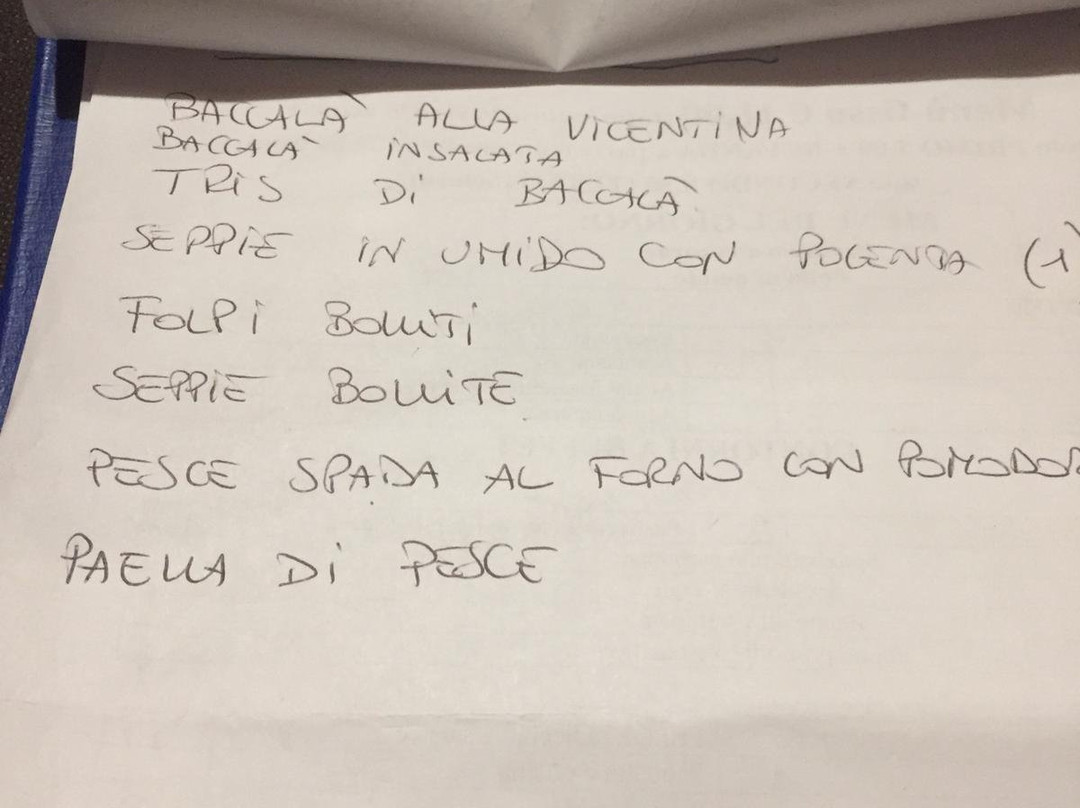 BACCALÀ ALLA VICENTINA
BACCALÀ INSALATA
TRIS DI BACCALÀ
SEPPIE IN UMIDO CON POLENTA (1)
FOLPI BOLLITI
SEPPIE BOLLITE
PESCE SPADA AL FORNO CON POMODOR
PAELLA DI PESCE